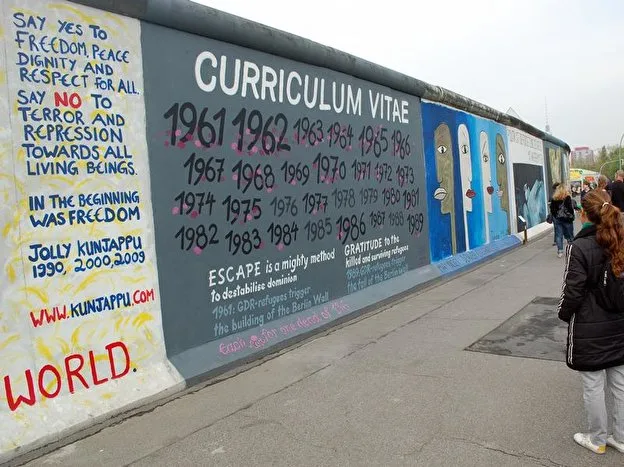 SAY YES TO
FREEDOM, PEACE
DIGNITY AND
RESPECT FOR ALL.
SAY NO TO
TERROR AND
REPRESSION
TOWARDS ALL
LIVING BEINGS.
IN THE BEGINNING
WAS FREEDOM
JOLLY KUNJAPPU
1990, 2000, 2009
WWW.KUNJAPPU.COM
WORLD.
CURRICULUM VITAE
1961 1962 1963 1964 1965 1966
1967 1968 1969 1970 1971 1972 1973
1974 1975 1976 1977 1978 1979 1980 1981
1982 1983 1984 1985 1986 1987 1988 1989
ESCAPE is a mighty method
to destabilise dominion
1961: GDR-refugees trigger
the building of the Berlin Wall
GRATITUDE to the
killed and surviving refugees
1989: GDR-refugees trigger
the fall of the Berlin Wall